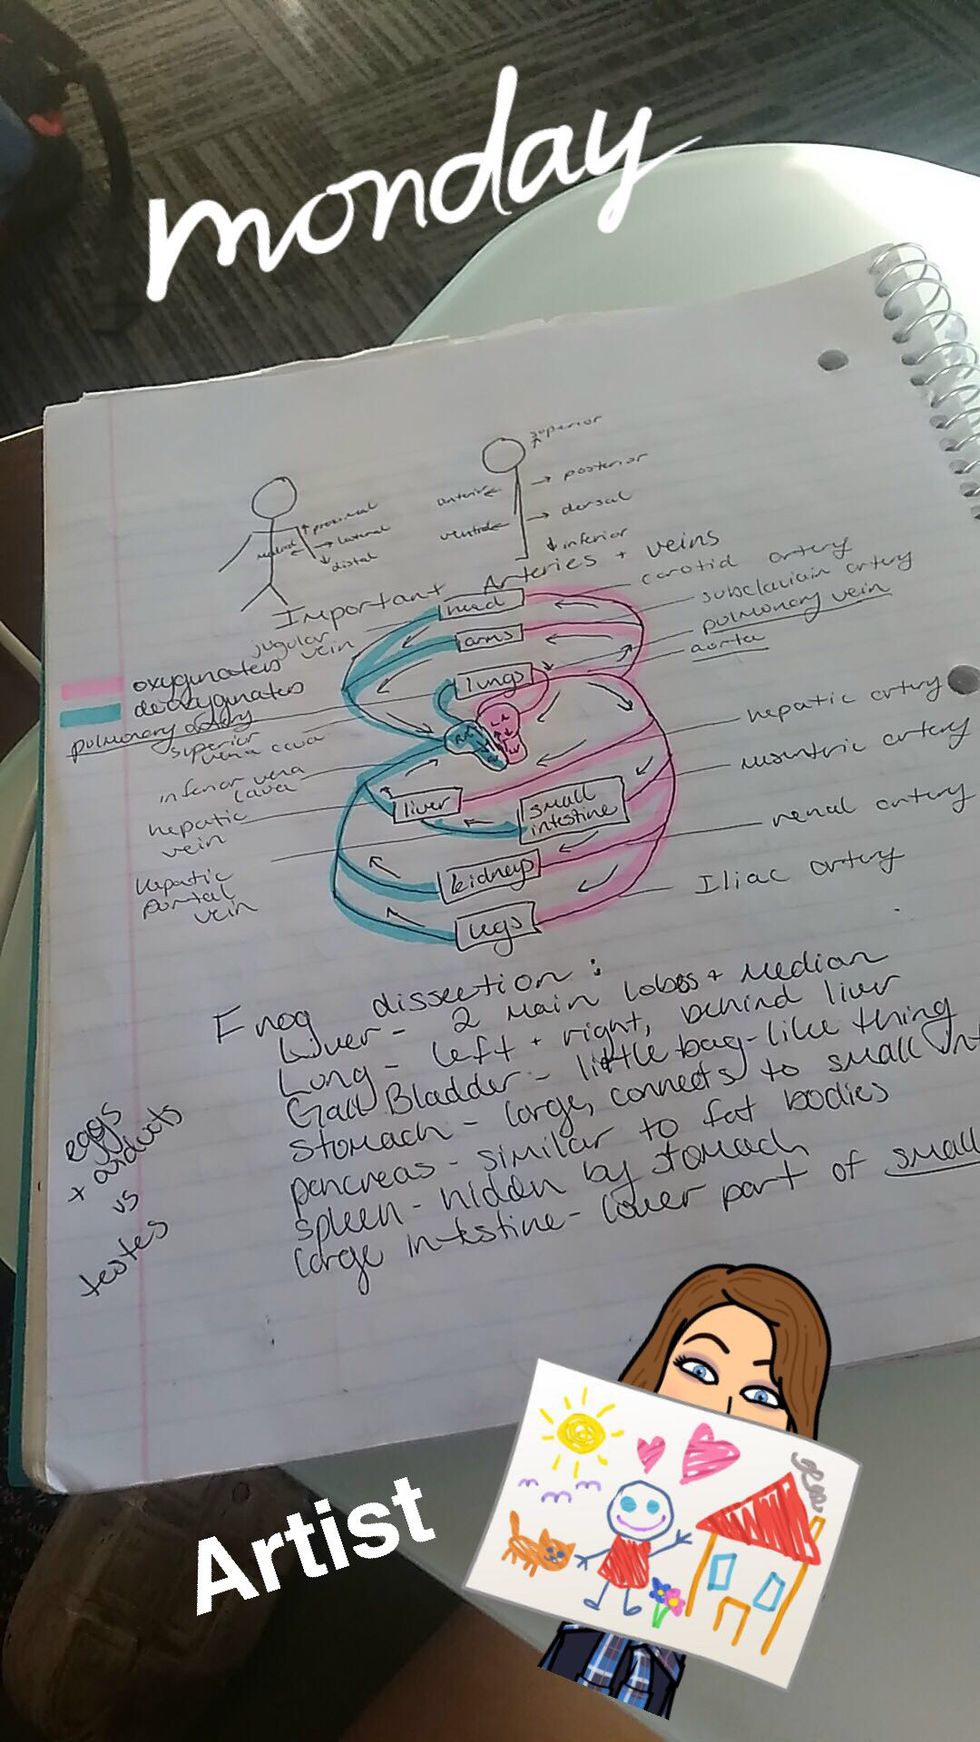 monday
superior
anterior
posterior
proximal
lateral
medial
distal
dorsal
ventral
inferior
Important Arteries + veins
head
carotid artery
jugular
vein
arms
subclavian artery
pulmonary vein
oxyginates
deoxyginates
lungs
aorta
pulmonary artery
superior
vena cava
hepatic artery
RA
LA
LV
inferior vena
cava
liver
small
intestine
hepatic
vein
renal artery
hepatic
portal
vein
kidneys
Iliac artery
legs
Frog dissection:
Liver - 2 main lobes + median
Lung - left + right, behind liver
Gall Bladder - little bag-like thing
Stomach - large, connects to small int
pancreas - similar to fat bodies
spleen - hidden by stomach
large intestine - lower part of small
eggs
+ oviducts
vs
testes
Artist